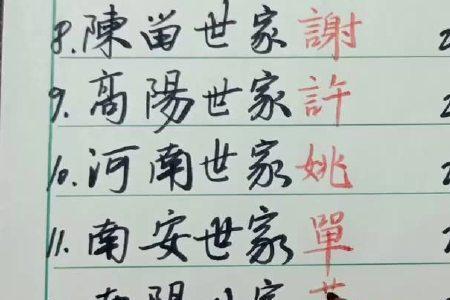 8.陳畄世家謝
9.高陽世家許
10.河南世家姚
11.南安世家單